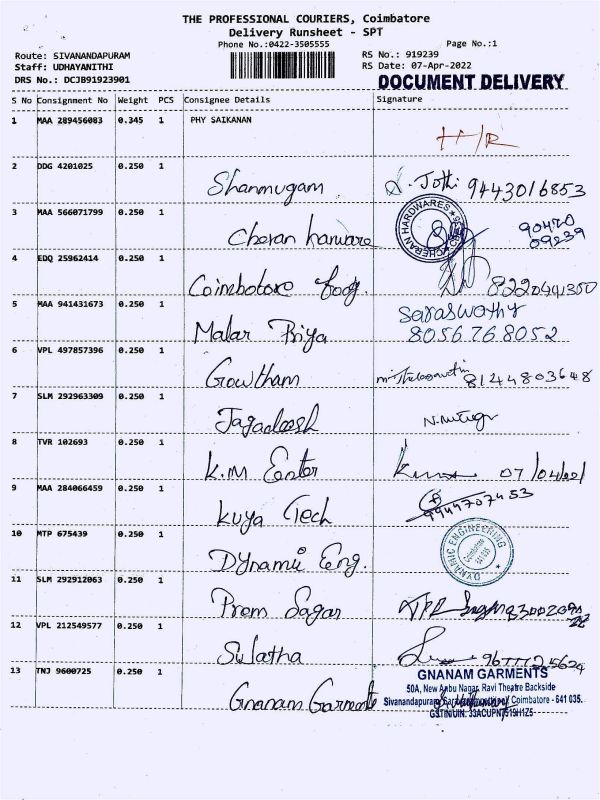 THE PROFESSIONAL COURIERS, Coimbatore
Delivery Runsheet - SPT
Phone No.:0422-3505555
Page No.:1
Route: SIVANANDAPURAM
Staff: UDHAYANITHI
DRS No.: DCJB91923901
RS No.: 919239
RS Date: 07-Apr-2022
DOCUMENT DELIVERY
S No Consignment No Weight PCS Consignee Details Signature
1 MAA 289456083 0.345 1 PHY SAIKANAN
H/R
2 DDG 4201025 0.250 1
Shanmugam Jothi 9443016853
3 MAA 566071799 0.250 1
Cheran harware CHERAN HARDWARES 90470 09239
4 EDQ 25962414 0.250 1
Coimbatore 8220441350
5 MAA 941431673 0.250 1
Malar Priya Saraswathy
8056768052
6 VPL 497857396 0.250 1
Gowtham 8124803648
7 SLM 292963309 0.250 1
Jagadeesh
8 TVR 102693 0.250 1
K.M Enter 07/04/
9 MAA 284066459 0.250 1
Kuya Tech 9944707453
10 MTP 675439 0.250 1
Dynamic Eng. DYNAMIC ENGINEERING
11 SLM 292912063 0.250 1
Prem Sagar
12 VPL 212549577 0.250 1
Sulatha
13 TNJ 9600725 0.250 1
Gnanam Garments
GNANAM GARMENTS
50A, New Anbu Nagar, Ravi Theatre Backside
Sivanandapuram, Coimbatore - 641 035.